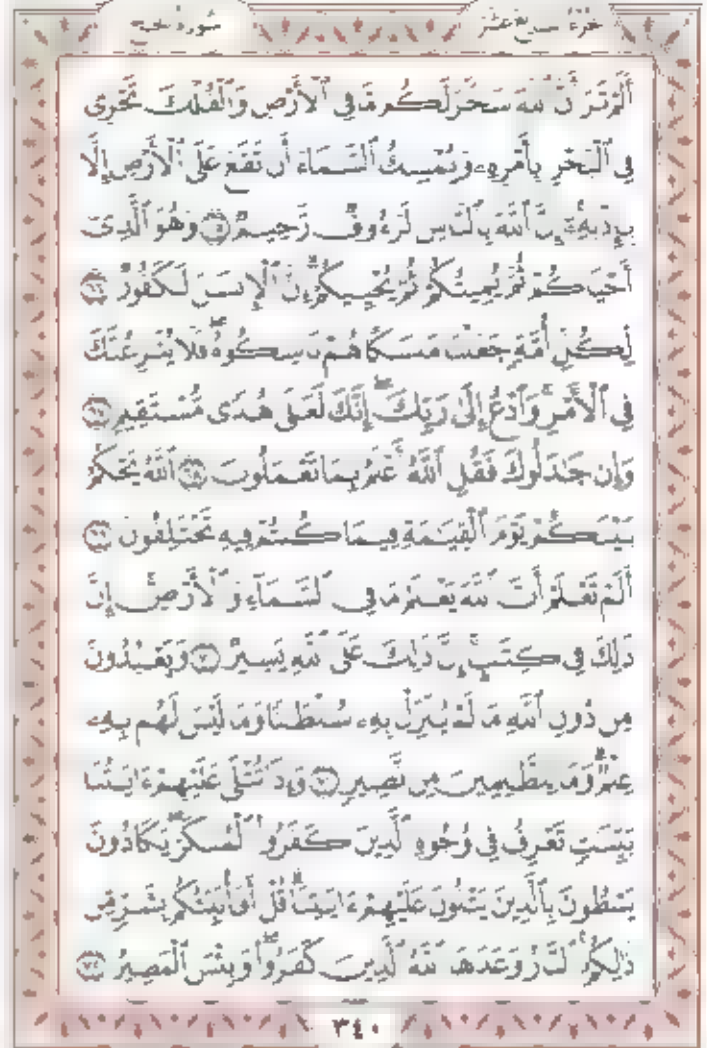 سورة الحج
الجزء السابع عشر
أَلَمْ تَرَ أَنَّ ٱللَّهَ سَخَّرَ لَكُم مَّا فِي ٱلْأَرْضِ وَٱلْفُلْكَ تَجْرِي
فِي ٱلْبَحْرِ بِأَمْرِهِۦ وَيُمْسِكُ ٱلسَّمَآءَ أَن تَقَعَ عَلَى ٱلْأَرْضِ إِلَّا
بِإِذْنِهِۦٓ إِنَّ ٱللَّهَ بِٱلنَّاسِ لَرَءُوفٌ رَّحِيمٌ ٦٥ وَهُوَ ٱلَّذِيٓ
أَحْيَاكُمْ ثُمَّ يُمِيتُكُمْ ثُمَّ يُحْيِيكُمْ إِنَّ ٱلْإِنسَٰنَ لَكَفُورٌ ٦٦
لِّكُلِّ أُمَّةٍ جَعَلْنَا مَنسَكًا هُمْ نَاسِكُوهُ فَلَا يُنَٰزِعُنَّكَ
فِي ٱلْأَمْرِ وَٱدْعُ إِلَىٰ رَبِّكَ إِنَّكَ لَعَلَىٰ هُدًى مُّسْتَقِيمٍ ٦٧
وَإِن جَٰدَلُوكَ فَقُلِ ٱللَّهُ أَعْلَمُ بِمَا تَعْمَلُونَ ٦٨ ٱللَّهُ يَحْكُمُ
بَيْنَكُمْ يَوْمَ ٱلْقِيَٰمَةِ فِيمَا كُنتُمْ فِيهِ تَخْتَلِفُونَ ٦٩
أَلَمْ تَعْلَمْ أَنَّ ٱللَّهَ يَعْلَمُ مَا فِي ٱلسَّمَآءِ وَٱلْأَرْضِ إِنَّ
ذَٰلِكَ فِي كِتَٰبٍ إِنَّ ذَٰلِكَ عَلَى ٱللَّهِ يَسِيرٌ ٧٠ وَيَعْبُدُونَ
مِن دُونِ ٱللَّهِ مَا لَمْ يُنَزِّلْ بِهِۦ سُلْطَٰنًا وَمَا لَيْسَ لَهُم بِهِۦ
عِلْمٌ وَمَا لِلظَّٰلِمِينَ مِن نَّصِيرٍ ٧١ وَإِذَا تُتْلَىٰ عَلَيْهِمْ ءَايَٰتُنَا
بَيِّنَٰتٍ تَعْرِفُ فِي وُجُوهِ ٱلَّذِينَ كَفَرُوا۟ ٱلْمُنكَرَ يَكَادُونَ
يَسْطُونَ بِٱلَّذِينَ يَتْلُونَ عَلَيْهِمْ ءَايَٰتِنَا قُلْ أَفَأُنَبِّئُكُم بِشَرٍّ مِّن
ذَٰلِكُمُ ٱلنَّارُ وَعَدَهَا ٱللَّهُ ٱلَّذِينَ كَفَرُوا۟ وَبِئْسَ ٱلْمَصِيرُ ٧٢
٣٤٠